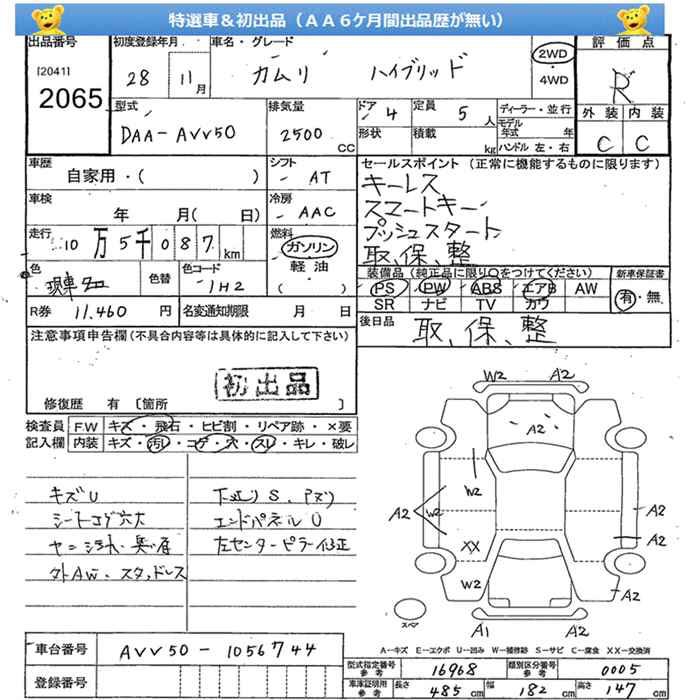 特選車＆初出品（ＡＡ６ケ月間出品歴が無い）
出品番号 初度登録年月 車名・グレード 評価点
[2041]
2065
28 11月 カムリ ハイブリッド 2WD ・ 4WD R
外装 内装
C C
型式 排気量 ドア 4 定員 5人 ディーラー・並行
DAA-AVV50 2500 CC 形状 積載 kg モデル年式 年
ハンドル 左・右
車歴 自家用・( ) シフト AT
セールスポイント（正常に機能するものに限ります）
キーレス
スマートキー
プッシュスタート
取、保、整
車検 年 月( 日) 冷房 AAC
走行 10万5千087km 燃料 ガソリン 軽油・( )
色 色替 色コード 1H2
装備品（純正品に限り○をつけてください） 新車保証書
PS PW ABS エアB AW 有・無
SR ナビ TV カワ
R券 11,460円 名変通知期限 月 日
後日品 取、保、整
注意事項申告欄（不具合内容等は具体的に記入して下さい）
初出品
修復歴 有 〔箇所 〕
検査員記入欄 F.W キズ・飛石・ヒビ割・リペア跡・×要
内装 キズ・汚れ・コゲ・穴・スレ・キレ・破レ
キズU
シートコゲ穴大
ヤニ汚れ・臭い有
外AW、スタッドレス
下廻りS、Pズリ
エンドパネルU
左センターピラー修正
W2 A2
A2
A2
W2
A2 W2 A2
A2
XX
W2 A2
スペア A1 A2
A－キズ E－エクボ U－凹み W－補修跡 S－サビ C－腐食 XX－交換済
車台番号 AVV50-1056744
登録番号
型式指定番号 参考 16968 類別区分番号 参考 0005
車庫証明用 参考 長さ 485cm 幅 182cm 高さ 147cm